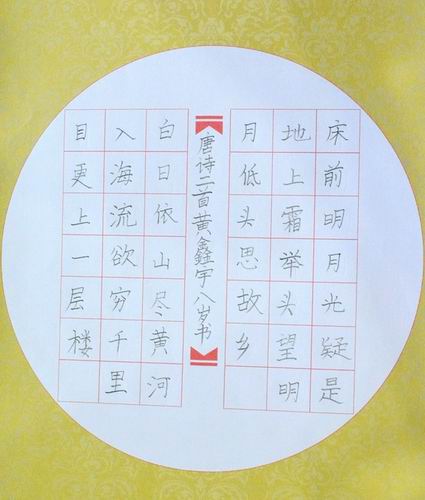 床前明月光疑是
地上霜举头望明
月低头思故乡
唐诗二首黄鑫宇八岁书
白日依山尽黄河
入海流欲穷千里
目更上一层楼